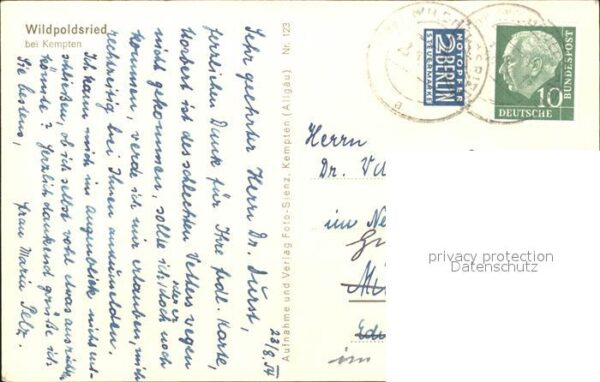 Wildpoldsried
bei Kempten
23/8.54
Sehr geehrter Herr Dr. Durst,
Dank für Ihre frdl. Karte,
Norbert ist des schlechten Wetters wegen
nicht gekommen, sollte ich doch noch
kommen, werde ich mir erlauben, mich
rechtzeitig bei Ihnen anzumelden.
Ich kann mich im Augenblick nicht ent-
schließen, ob ich selbst wohl etwas
könnte? Herzlich dankend grüße ich
Sie bestens,
Frau Maria Pelz.
Aufnahme und Verlag Foto-Sienz, Kempten (Allgäu) Nr. 123
NOTOPFER
2 BERLIN
STEUERMARKE
10
DEUTSCHE
BUNDESPOST
Herrn
Dr.
im
im
privacy protection
Datenschutz